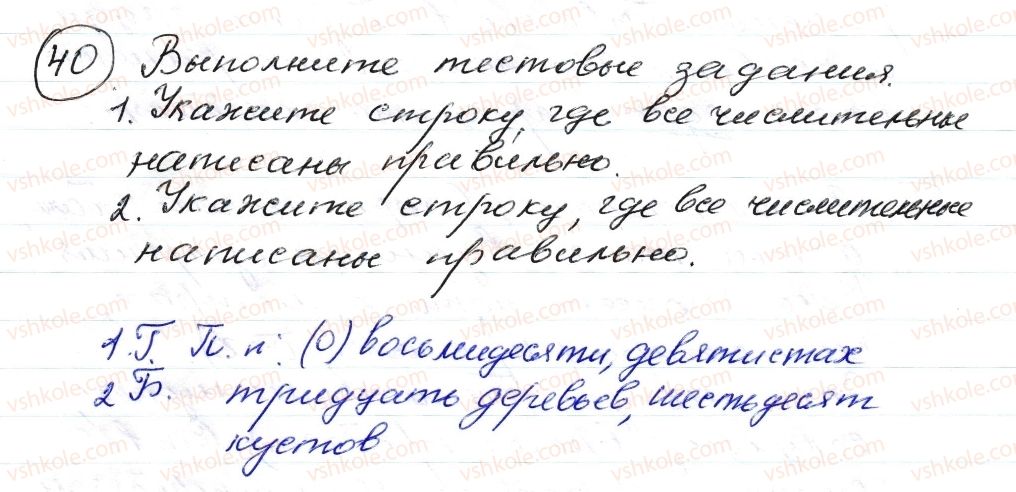 40 Выполните тестовые задания.
1. Укажите строку, где все числительные
написаны правильно.
2. Укажите строку, где все числительные
написаны правильно.
1. Г. П. п: (о) восьмидесяти, девятистах
2 Б. тридцать деревьев, шестьдесят
кустов